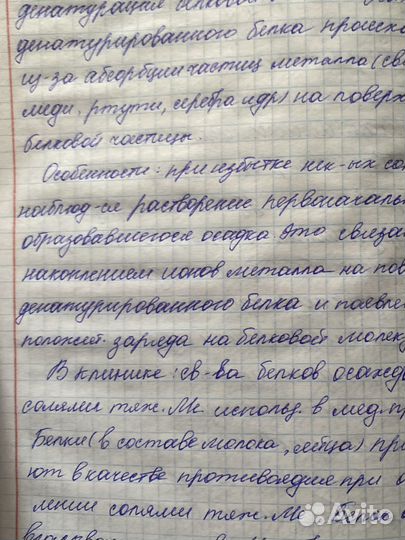 денатурация белковой
денатурированного белка происхо
из-за абсорбции частиц металла (сви
меди, ртути, серебра и др) на поверх
белковой частицы.
Особенности: при избытке нек-ых сол
наблюд-ся растворение первоначаль
образовавшегося осадка. Это связа
накоплением ионов металла на пов
денатурированного белка и появле
положит. заряда на белковой молек
В клинике: св-ва белков осажд
солями тяж. Ме использ. в мед. пр
Белки (в составе молока, яйца) при
ют в качестве противоядие при о
лении солями тяж. Ме. Белки
Avito